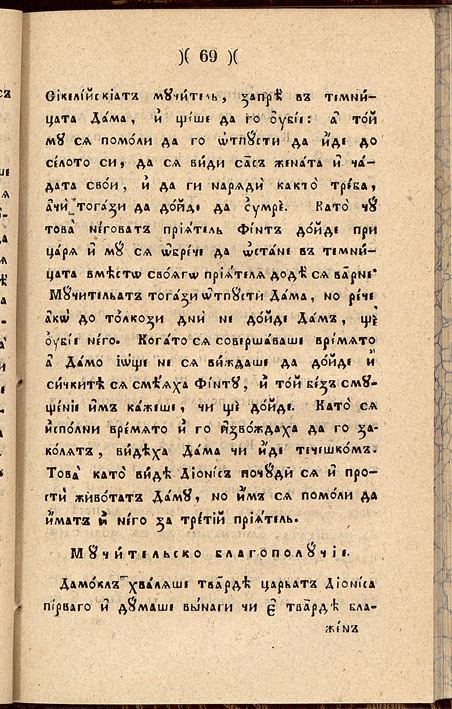 )( 69 )(
Сікелі́йскіатъ мꙋчи́тель, запрѣ̀ въ темни́-
цата Да́ма, и҆ щѣше да го оу҆бі́е: а҆ то́й
мꙋ сѧ помо́ли да го ѿпꙋ́сти да и҆́де до
се́лото си, да сѧ ви́ди са̀съ жена́та и҆ ча́-
дата свои́, и҆ да ги нарѧди̇̀ както̀ тре́ба,
а҆чи̇̀ тога́зи да до́йде да ᲂу҆мрѐ. Като̀ чꙋ̀
това̀ не́говатъ прїѧ́тель Фі́нтъ до́йде при
царѧ̀ и҆ мꙋ сѧ ѡ҆брѐче да ѡ҆ста́не въ темни́-
цата вмѣ́стѡ своѧ̀гѡ прїѧ́телѧ додѣ̀ сѧ ва̀рне·
Мꙋчи́тельатъ тога́зи ѿпꙋ́сти Да́ма, но ре́че
а҆́кѡ до то́лкози дни̇̀ не до́йде Да́мъ, щѣ̀
оу҆бі́е не́го. Кога́то сѧ соверша́ваше вре́мѧто
а҆ Да́мо і҆ѡ́ще не сѧ ви́ждаше да до́йде и҆̀
си́чкитѣ сѧ смѣ́ѧха Фі́нтꙋ, и҆ то́й бе́зъ смꙋ-
ще́ніе и҆̀мъ ка́жеше, чи щѐ до́йде. Като̀ сѧ
и҆спо́лни вре́мѧто и҆ го и҆зво́ждаха да го за-
ко́лѧтъ, ви́дѣха Да́ма чи и҆́де течешко́мъ.
Това̀ като̀ ви́дѣ Діони́съ почꙋ́ди сѧ и҆ про-
сти̇̀ живо́татъ Да́мꙋ, но и҆̀мъ сѧ помо́ли да
и҆́матъ и҆ не́го за тре́тій прїѧ́тель.
Мꙋчи́тельско благополꙋ́чіе.
Дамо́клъ хва́лѧше тва̀рдѣ царьатъ Діони́са
пі́рваго и҆ дꙋ́маше вы́наги чи є҆̀ тва̀рдѣ бла-
же́нъ